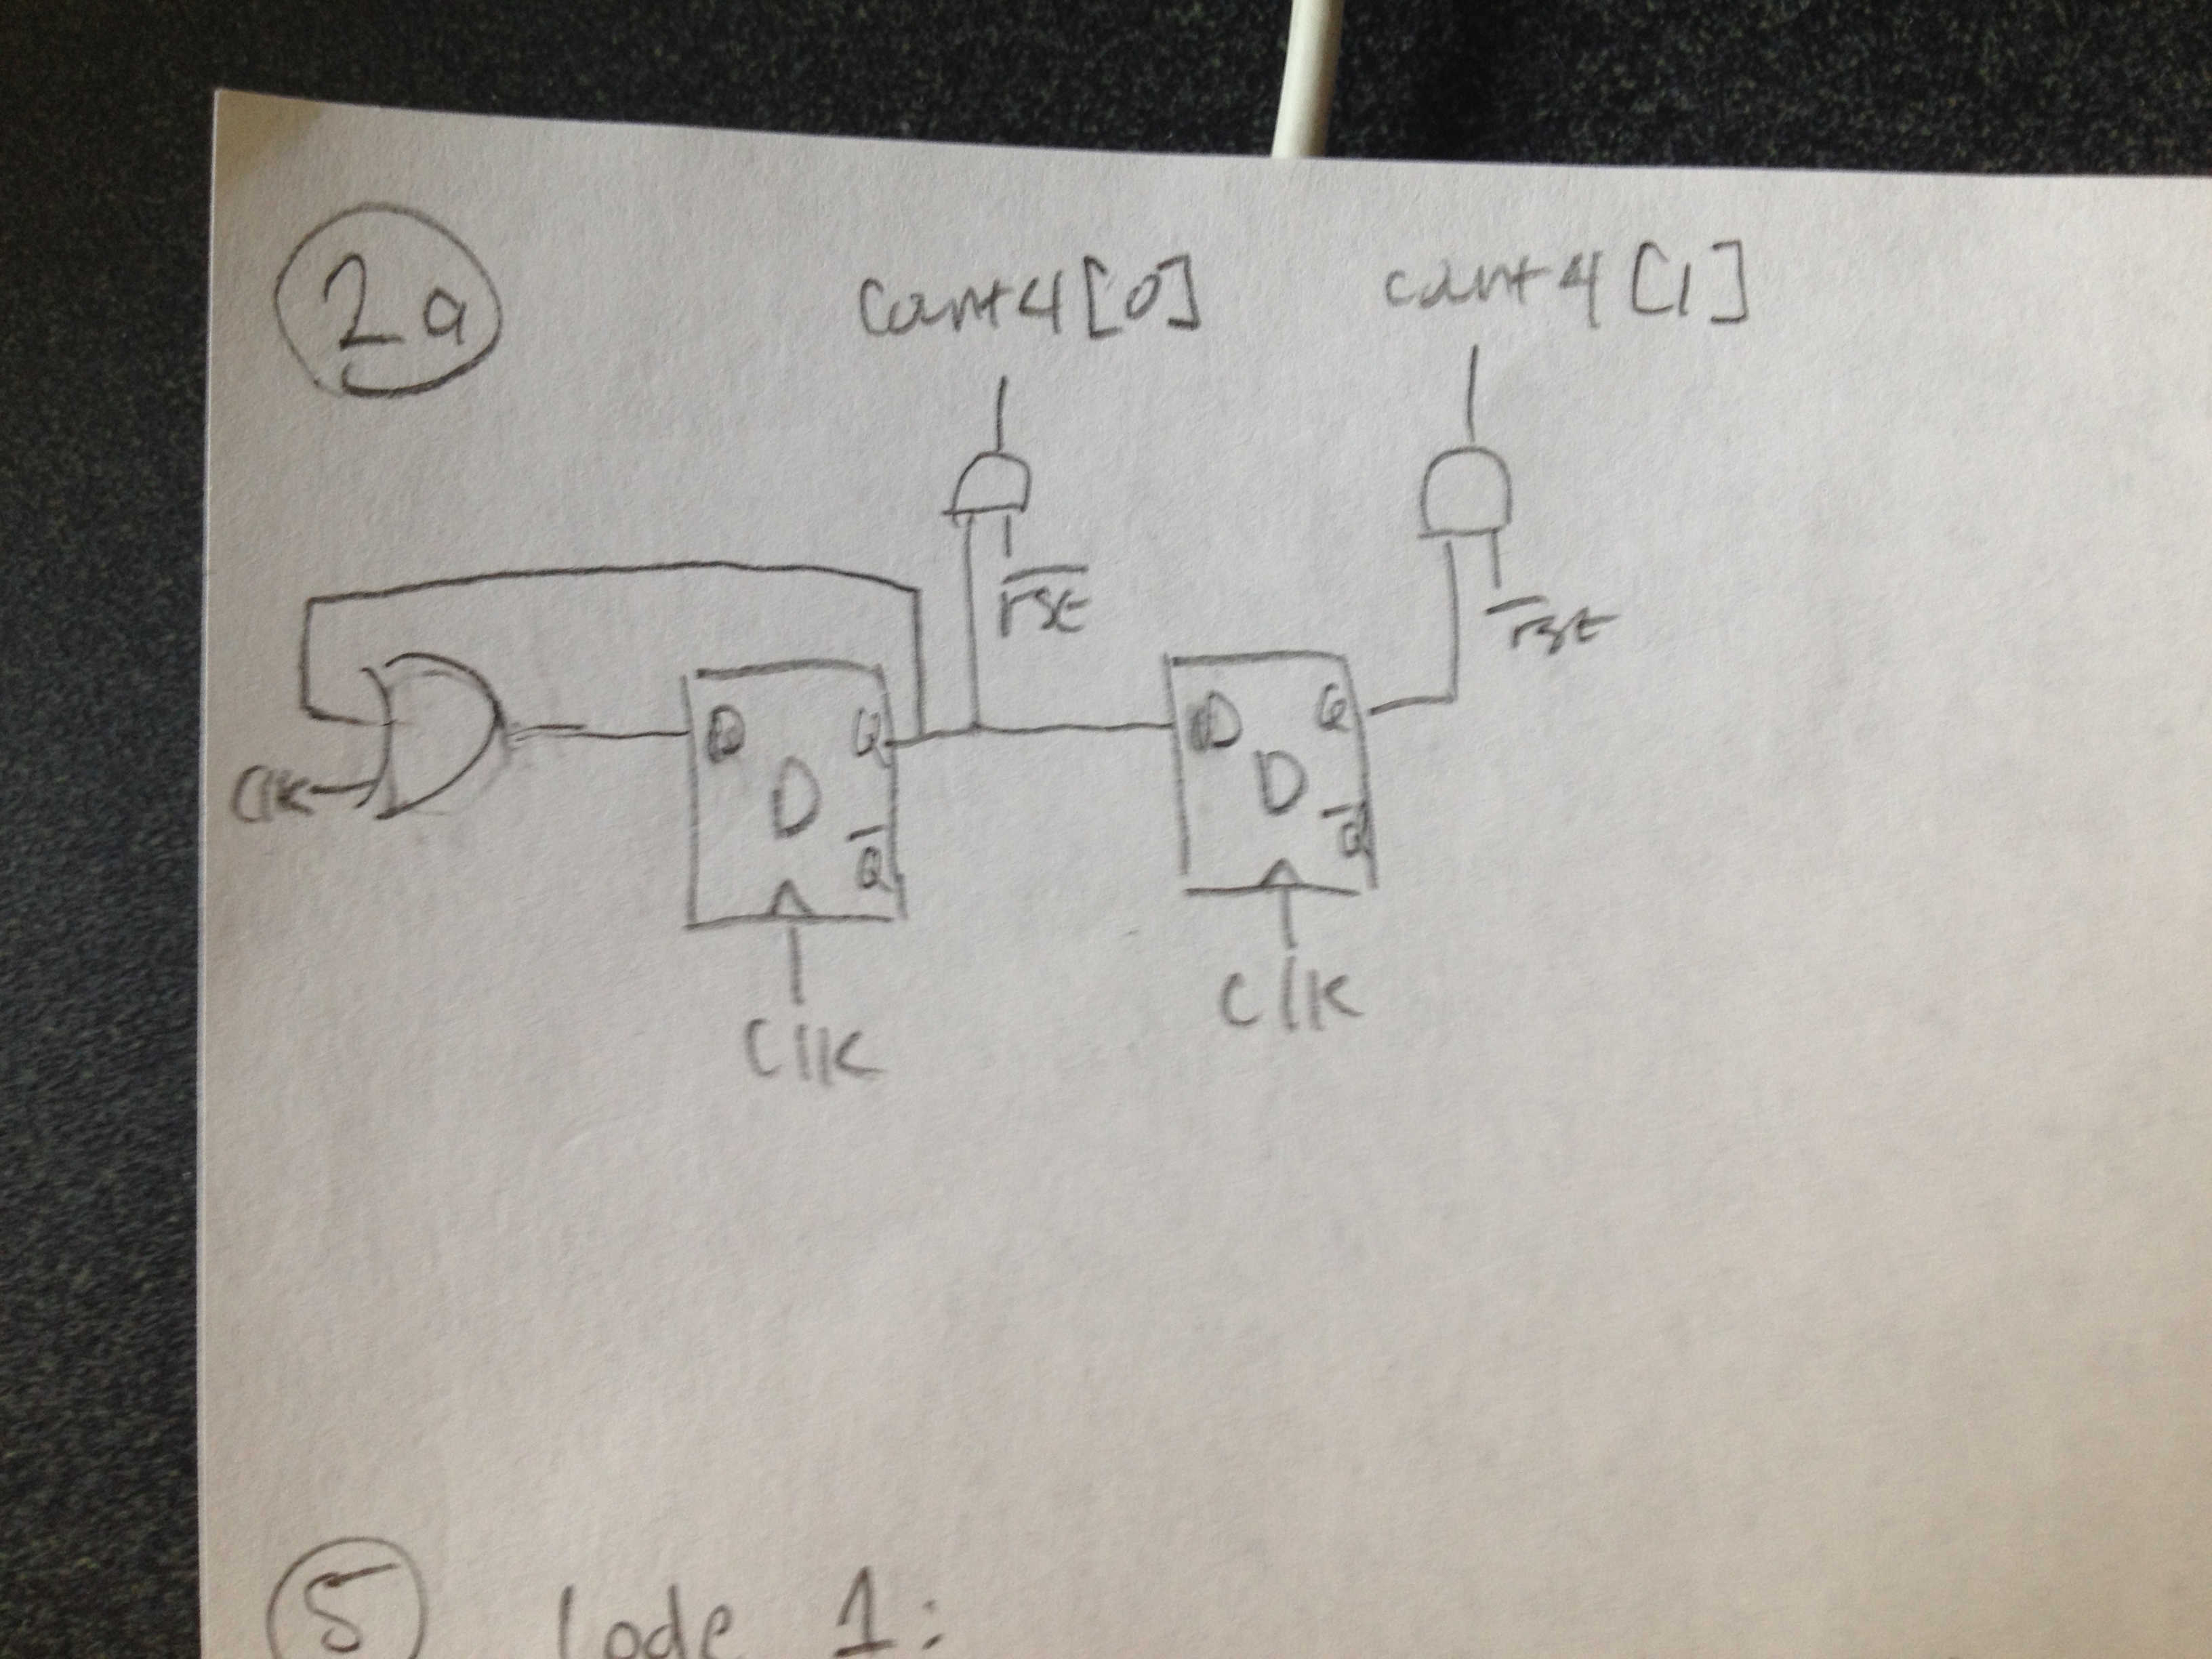 2a
count4[0] count4[1]
r̅s̅t̅
r̅s̅t̅
D Q D Q
Clk D D
Q̅ Q̅
Clk Clk
5 Code 1: